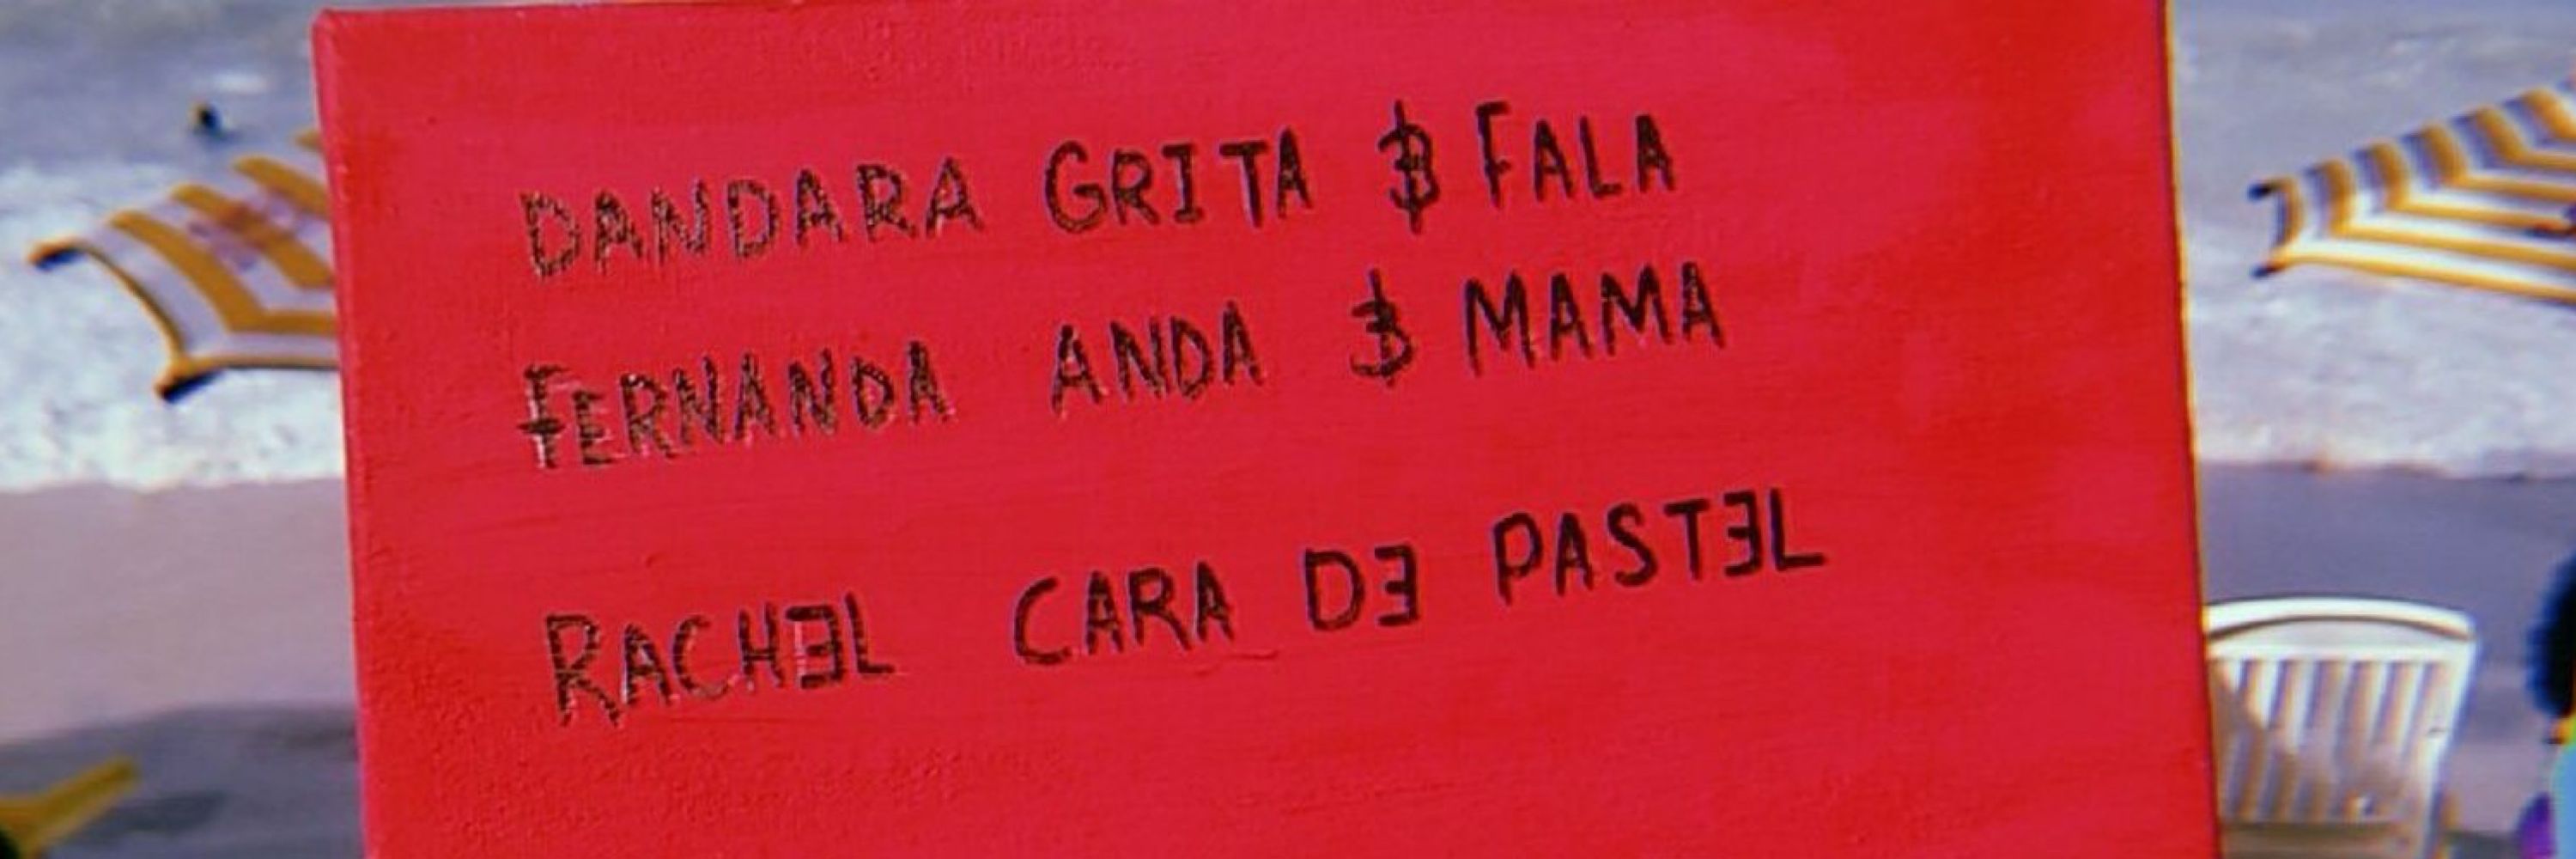 DANDARA GRITA & FALA
FERNANDA ANDA & MAMA
RACHEL CARA DE PASTEL